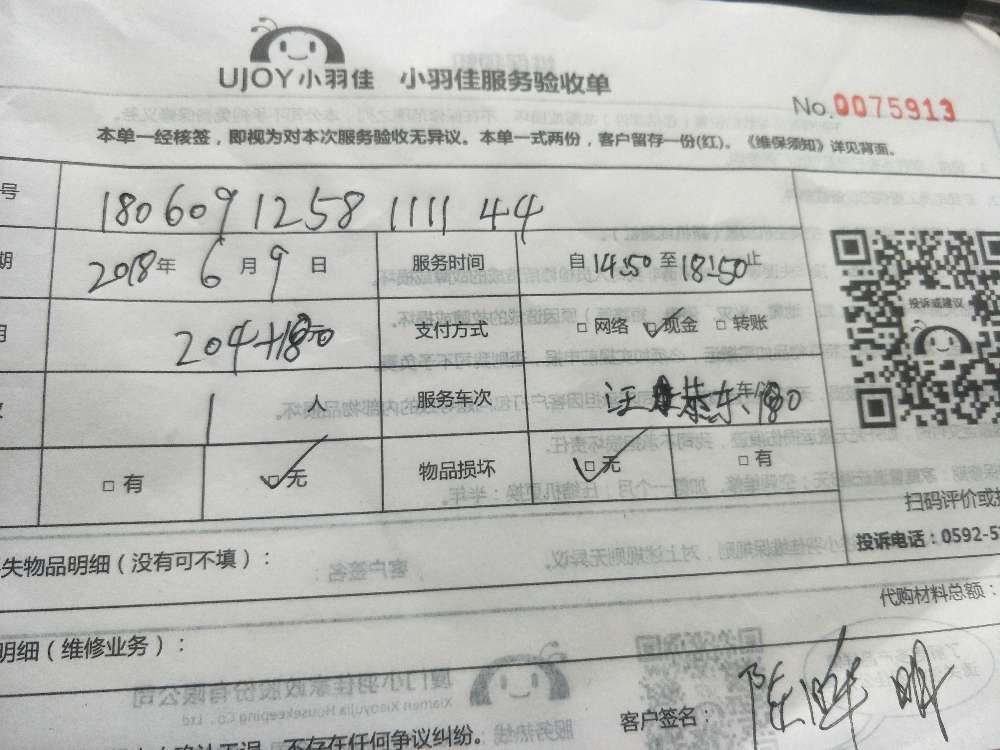 UJOY小羽佳 小羽佳服务验收单
No.0075913
本单一经核签，即视为对本次服务验收无异议。本单一式两份，客户留存一份(红)。《维保须知》详见背面。
号 180609 1258 1111 44
期 2018年 6 月 9 日 服务时间 自 14:50 至 18:50 止
204+180元 支付方式 □ 网络 □ 现金 □ 转账
1 人 服务车次
□ 有 □ 无 物品损坏 □ 无 □ 有
投诉或建议
扫码评价或投
投诉电话：0592-5
失物品明细（没有可不填）：
代购材料总额：
明细（维修业务）：
客户签名：
不存在任何争议纠纷。